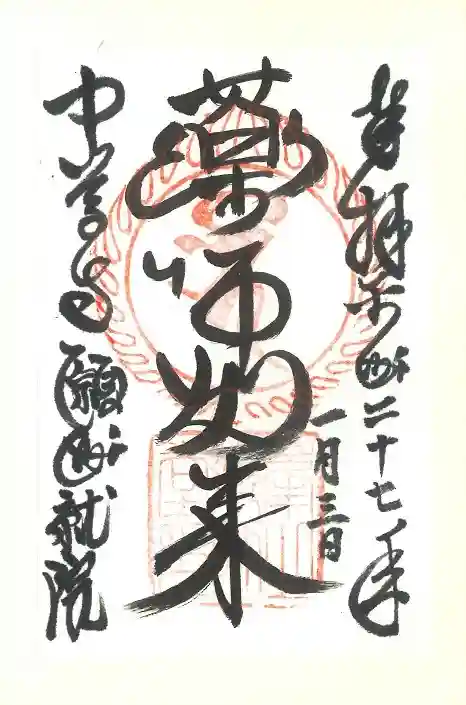 奉拝平成二十七年
一月三日
薬師如来
中尊寺願成就院